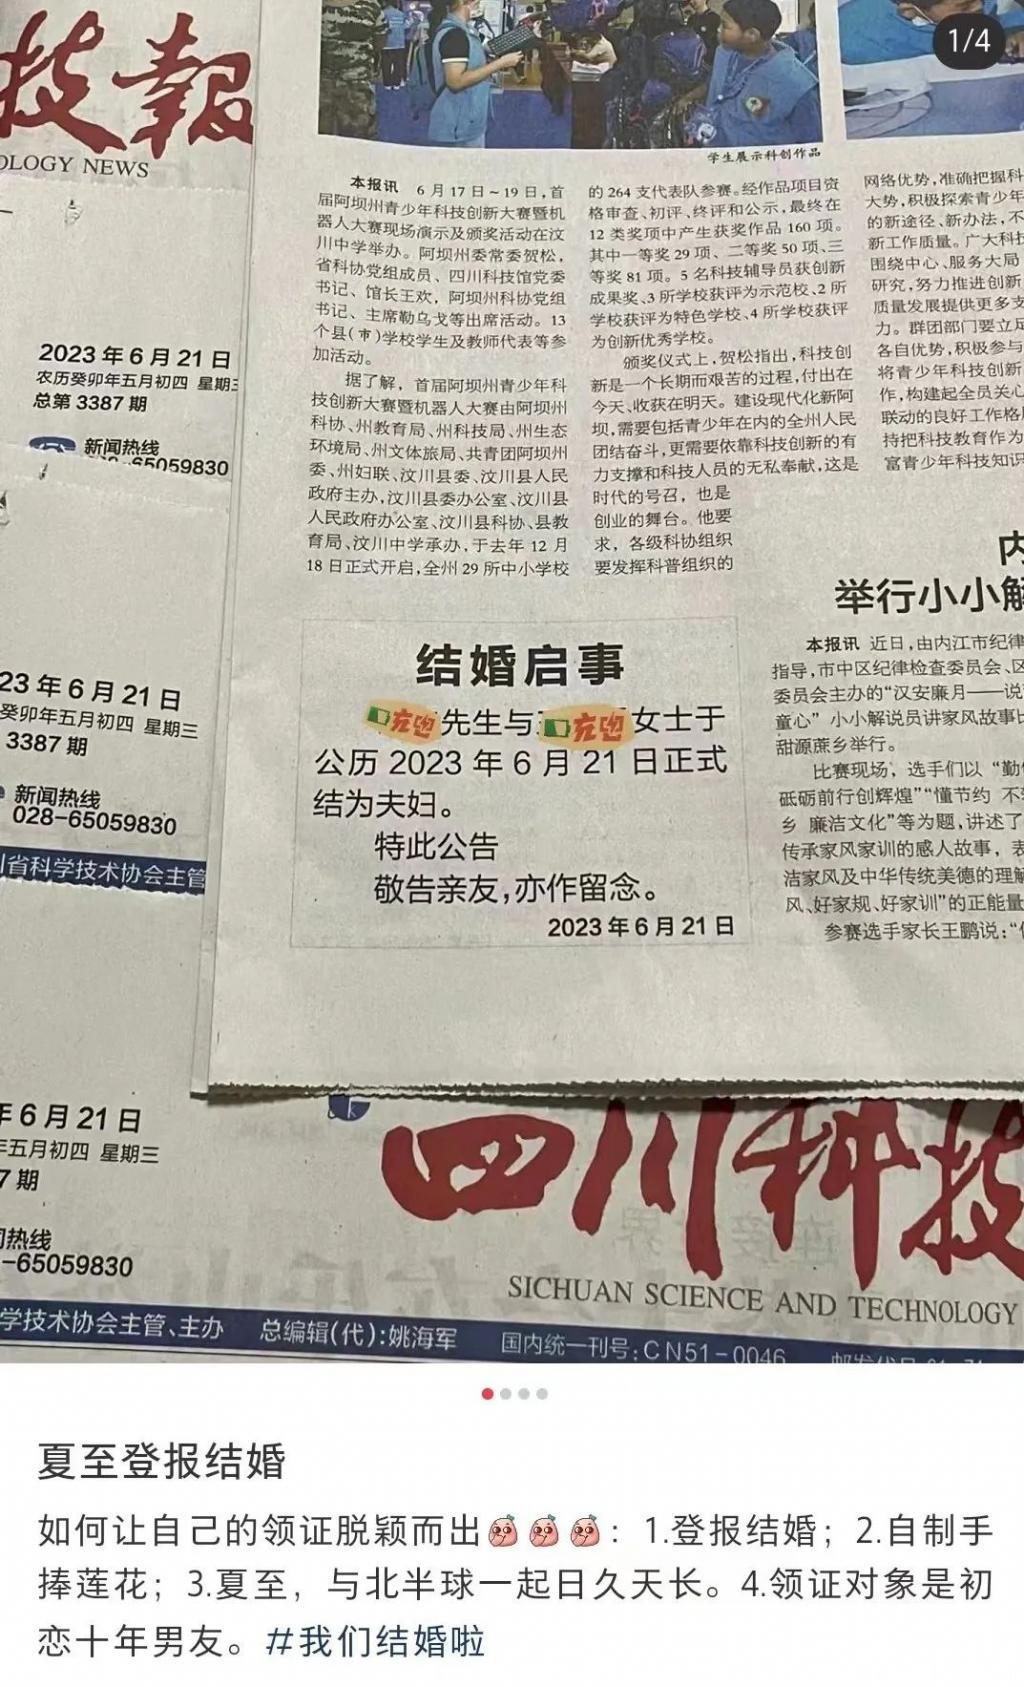 1/4
技報
OLOGY NEWS
2023年6月21日
农历癸卯年五月初四 星期三
总第3387期
新闻热线
65059830
23年6月21日
癸卯年五月初四 星期三
3387期
新闻热线
028-65059830
省科学技术协会主管
年6月21日
年五月初四 星期三
7期
闻热线
-65059830
学生展示科创作品
本报讯 6月17日~19日,首
届阿坝州青少年科技创新大赛暨机
器人大赛现场演示及颁奖活动在汶
川中学举办。阿坝州委常委贺松,
省科协党组成员、四川科技馆党委
书记、馆长王欢,阿坝州科协党组
书记、主席勒乌戈等出席活动。13
个县(市)学校学生及教师代表等参
加活动。
据了解,首届阿坝州青少年科
技创新大赛暨机器人大赛由阿坝州
科协、州教育局、州科技局、州生态
环境局、州文体旅局、共青团阿坝州
委、州妇联、汶川县委、汶川县人民
政府主办,汶川县委办公室、汶川县
人民政府办公室、汶川县科协、县教
育局、汶川中学承办,于去年12月
18日正式开启,全州29所中小学校
的264支代表队参赛。经作品项目资
格审查、初评、终评和公示,最终在
12类奖项中产生获奖作品160项。
其中一等奖29项、二等奖50项、三
等奖81项。5名科技辅导员获创新
成果奖、3所学校获评为示范校、2所
学校获评为特色学校、4所学校获评
为创新优秀学校。
颁奖仪式上,贺松指出,科技创
新是一个长期而艰苦的过程,付出在
今天、收获在明天。建设现代化新阿
坝,需要包括青少年在内的全州人民
团结奋斗,更需要依靠科技创新的有
力支撑和科技人员的无私奉献,这是
时代的号召,也是
创业的舞台。他要
求,各级科协组织
要发挥科普组织的
网络优势,准确把握科
大势,积极探索青少年
的新途径、新办法,不
新工作质量。广大科技
围绕中心、服务大局
研究,努力推进创新
质量发展提供更多支
力。群团部门要立足
各自优势,积极参与
将青少年科技创新
作,构建起全员关心
联动的良好工作格局
持把科技教育作为
富青少年科技知识
结婚启事
充电先生与充电女士于
公历2023年6月21日正式
结为夫妇。
特此公告
敬告亲友,亦作留念。
2023年6月21日
内
举行小小解
本报讯 近日,由内江市纪律
指导,市中区纪律检查委员会、区
委员会主办的“汉安廉月——说
童心”小小解说员讲家风故事比
甜源蔗乡举行。
比赛现场,选手们以“勤俭
砥砺前行创辉煌”“懂节约 不
乡 廉洁文化”等为题,讲述了
传承家风家训的感人故事,表
洁家风及中华传统美德的理解
风、好家规、好家训”的正能量
参赛选手家长王鹏说:“
四川科技
SICHUAN SCIENCE AND TECHNOLOGY
学技术协会主管、主办 总编辑(代):姚海军 国内统一刊号:CN51-0046
夏至登报结婚
如何让自己的领证脱颖而出：1.登报结婚；2.自制手
捧莲花；3.夏至，与北半球一起日久天长。4.领证对象是初
恋十年男友。#我们结婚啦